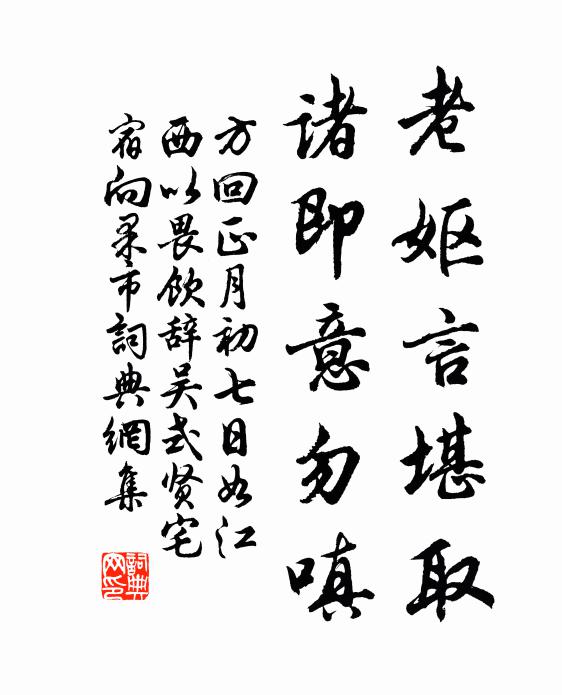 老妪言堪取
诸即意勿嗔
方回正月初七日如江
西以畏饮辞吴式贤宅
宿向柔市詞典網集
詞典网印